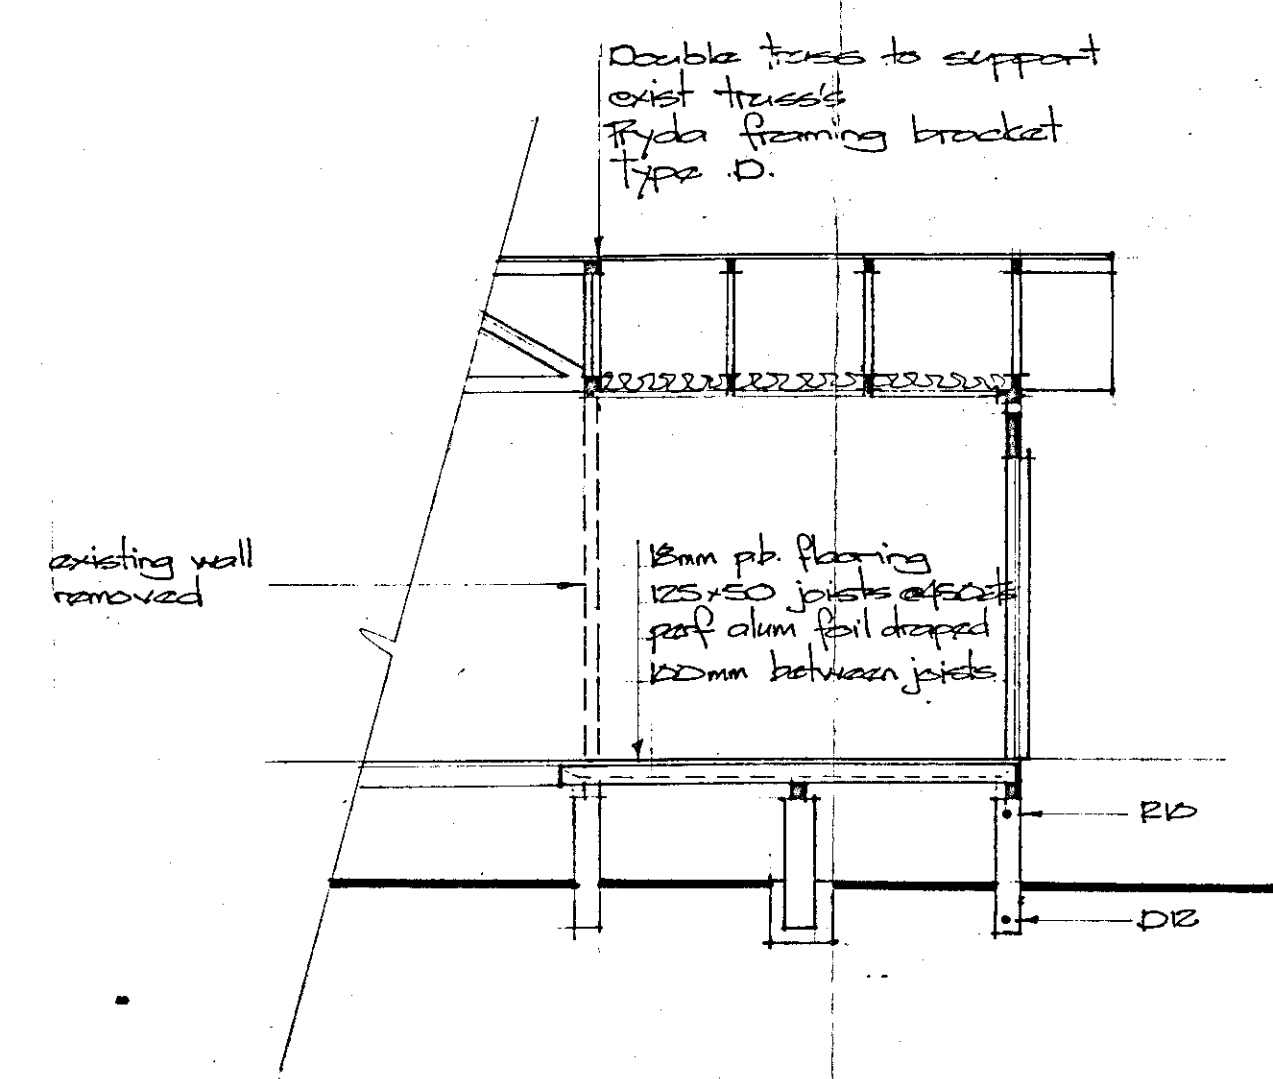 Double truss to support
exist truss's
Pryda framing bracket
Type .D.
existing wall
removed
18mm p.b. flooring
125x50 joists @450c/s
perf alum foil draped
100mm between joists
R10
D12